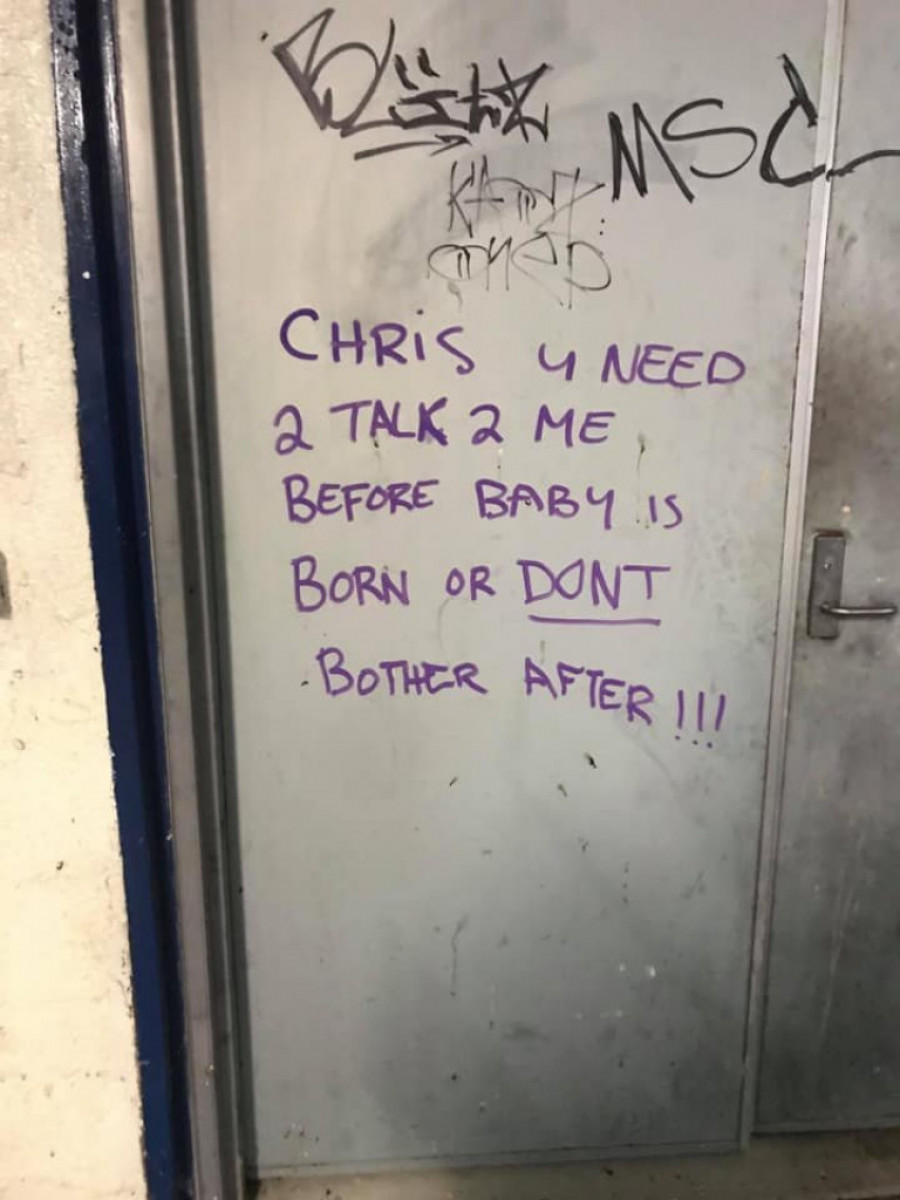 MSC
CHRiS U NEED
2 TALK 2 ME
BEFORE BABY IS
BORN OR DONT
BOTHER AFTER!!!